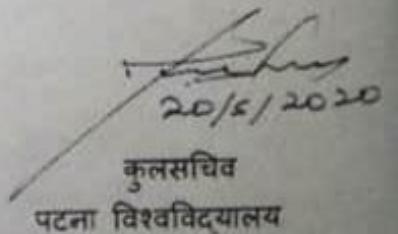 20/5/2020
कुलसचिव
पटना विश्वविद्यालय